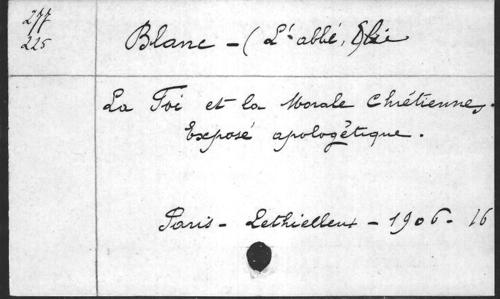 277
225
Blanc - (L'abbé, Elie
La Foi et la Morale Chrétiennes.
Exposé apologétique.
Paris - Lethielleux - 1906 - 16